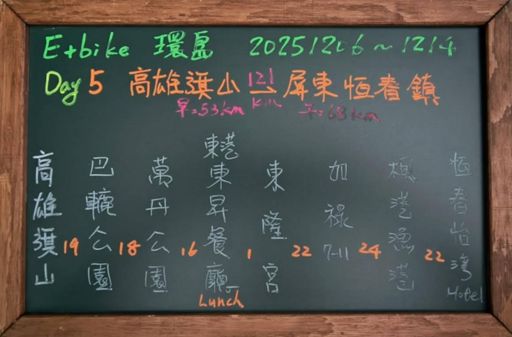 E+bike 環島 20251206~1214
Day 5 高雄旗山 121 km 屏東恒春鎮
早=53km 午=68km
高雄旗山
19
巴轆公園
18
萬丹公園
16
東港東昇餐廳
Lunch
1
東隆宮
22
加祿7-11
24
楓港漁港
22
恒春怡灣Hotel